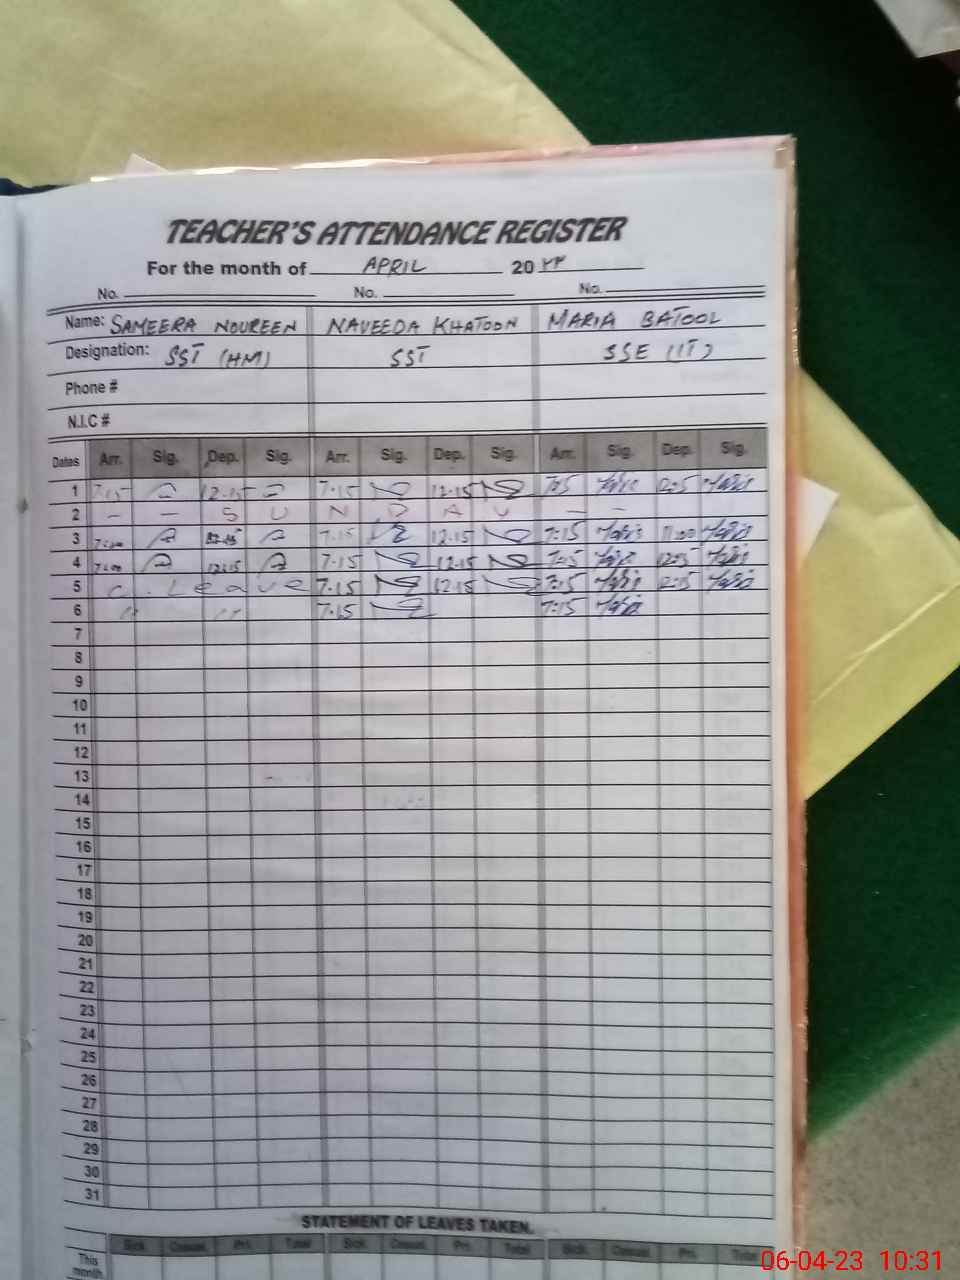 TEACHER'S ATTENDANCE REGISTER
For the month of APRIL 20
No. No. No.
Name: SAMEERA NOUREEN NAVEEDA KHATOON MARIA BATOOL
Designation: SST (HM) SST SSE (IT)
Phone #
N.I.C #
Dates Arr. Sig. Dep. Sig. Arr. Sig. Dep. Sig. Arr. Sig. Dep. Sig.
1 7-15 12-15 7-15 12-15
2 - - S U N D A Y - -
3 7:00 7-15 12-15 7:15 11:00
4 7:00 12:15 7-15 12-15
5 C. Leave 7-15 12-15 7:15
6 " " 7-15 7:15
7
8
9
10
11
12
13
14
15
16
17
18
19
20
21
22
23
24
25
26
27
28
29
30
31
STATEMENT OF LEAVES TAKEN.
This month Sick Casual Pri. Total Sick Casual Pri. Total Sick Casual Pri. Total
06-04-23 10:31